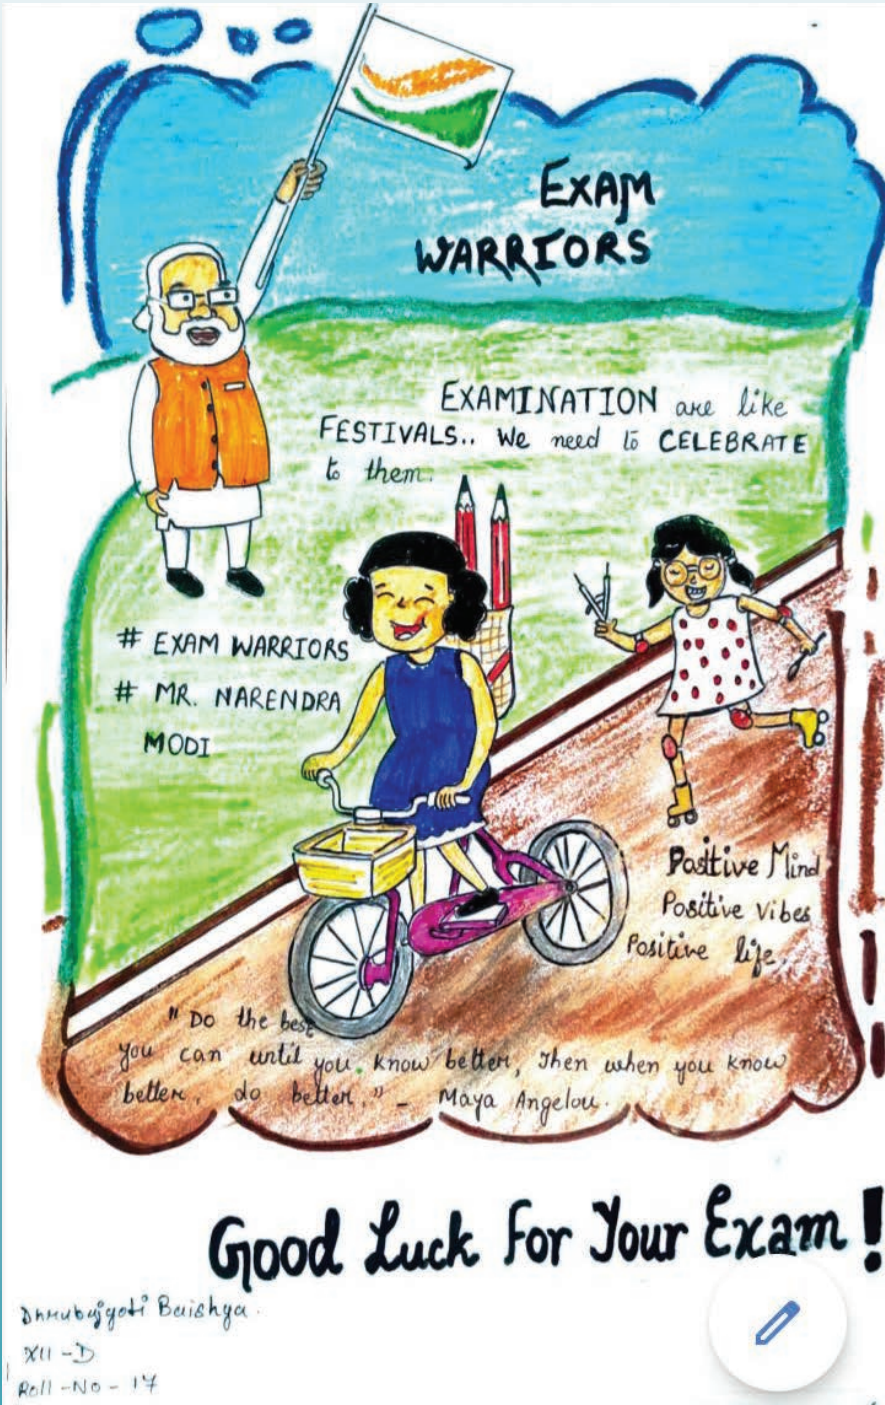 EXAM
WARRIORS
EXAMINATION are like
FESTIVALS.. We need to CELEBRATE
to them.
# EXAM WARRIORS
# MR. NARENDRA
MODI
Positive Mind
Positive Vibes
Positive life.
"Do the best
you can until you know better, Then when you know
better, do better." - Maya Angelou.
Good Luck For Your Exam!
Dhrubajyoti Baishya.
XII - D
Roll - No - 17